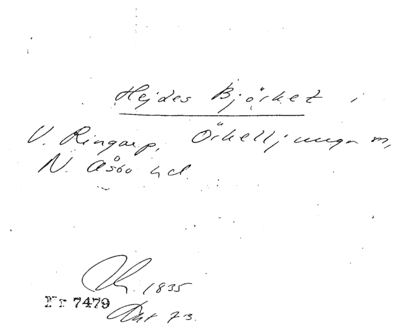 Hejdes Björket i
V. Ringarp, Örkelljunga m,
N. Åsbo hd.
1835
Nr 7479
73.